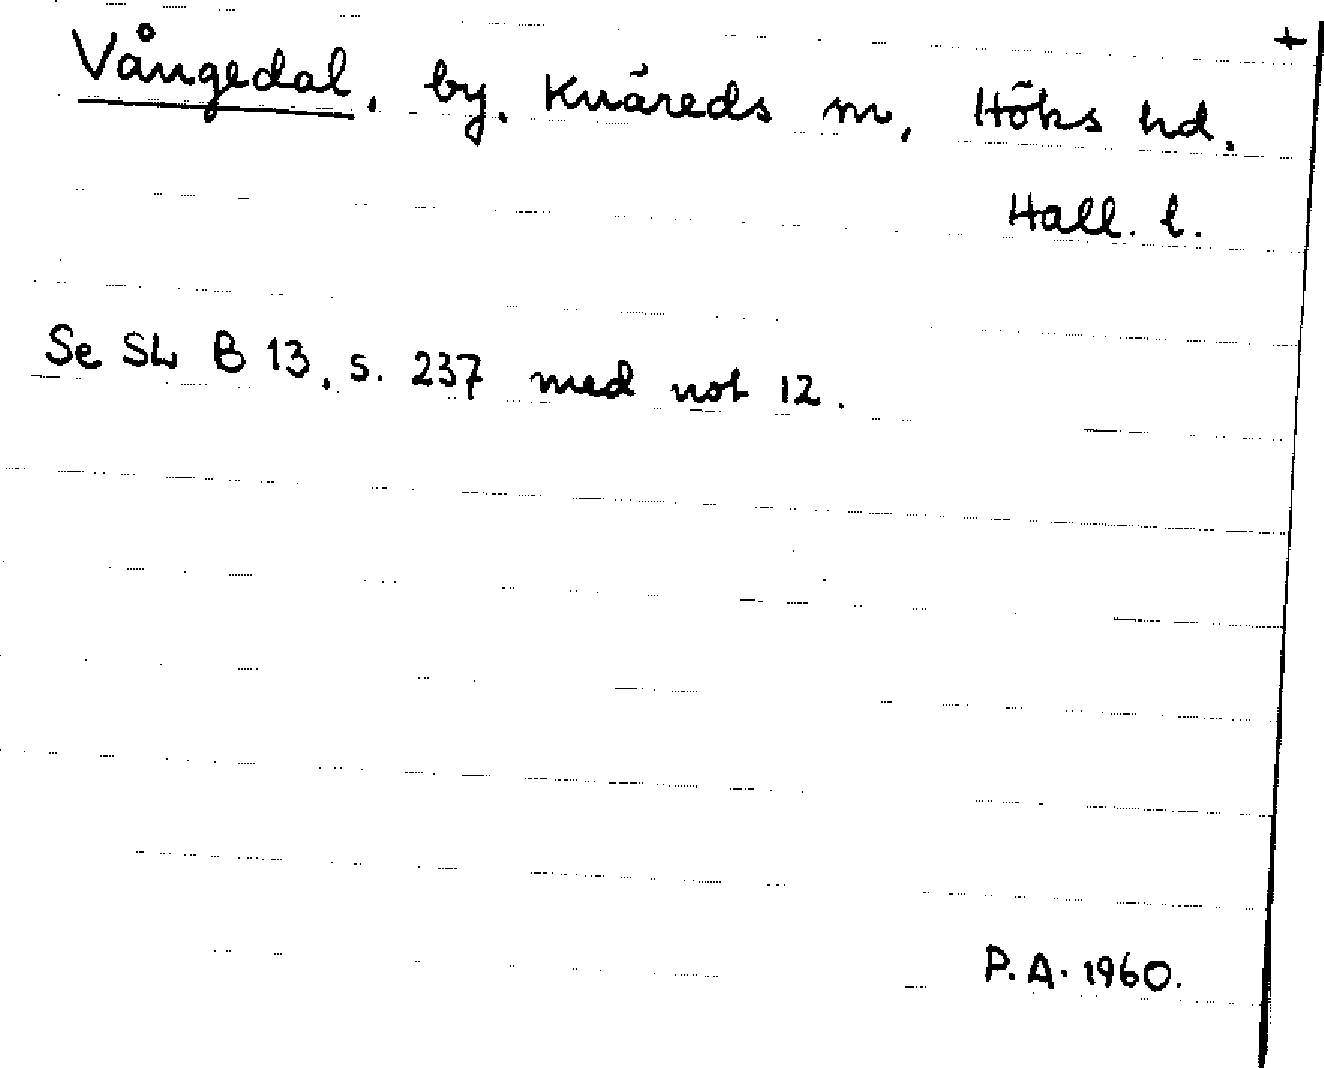 +
Vångedal, by, Knäreds sn, Höks hd,
Hall. l.
Se SL B 13, s. 237 med not 12.
P.A. 1960.